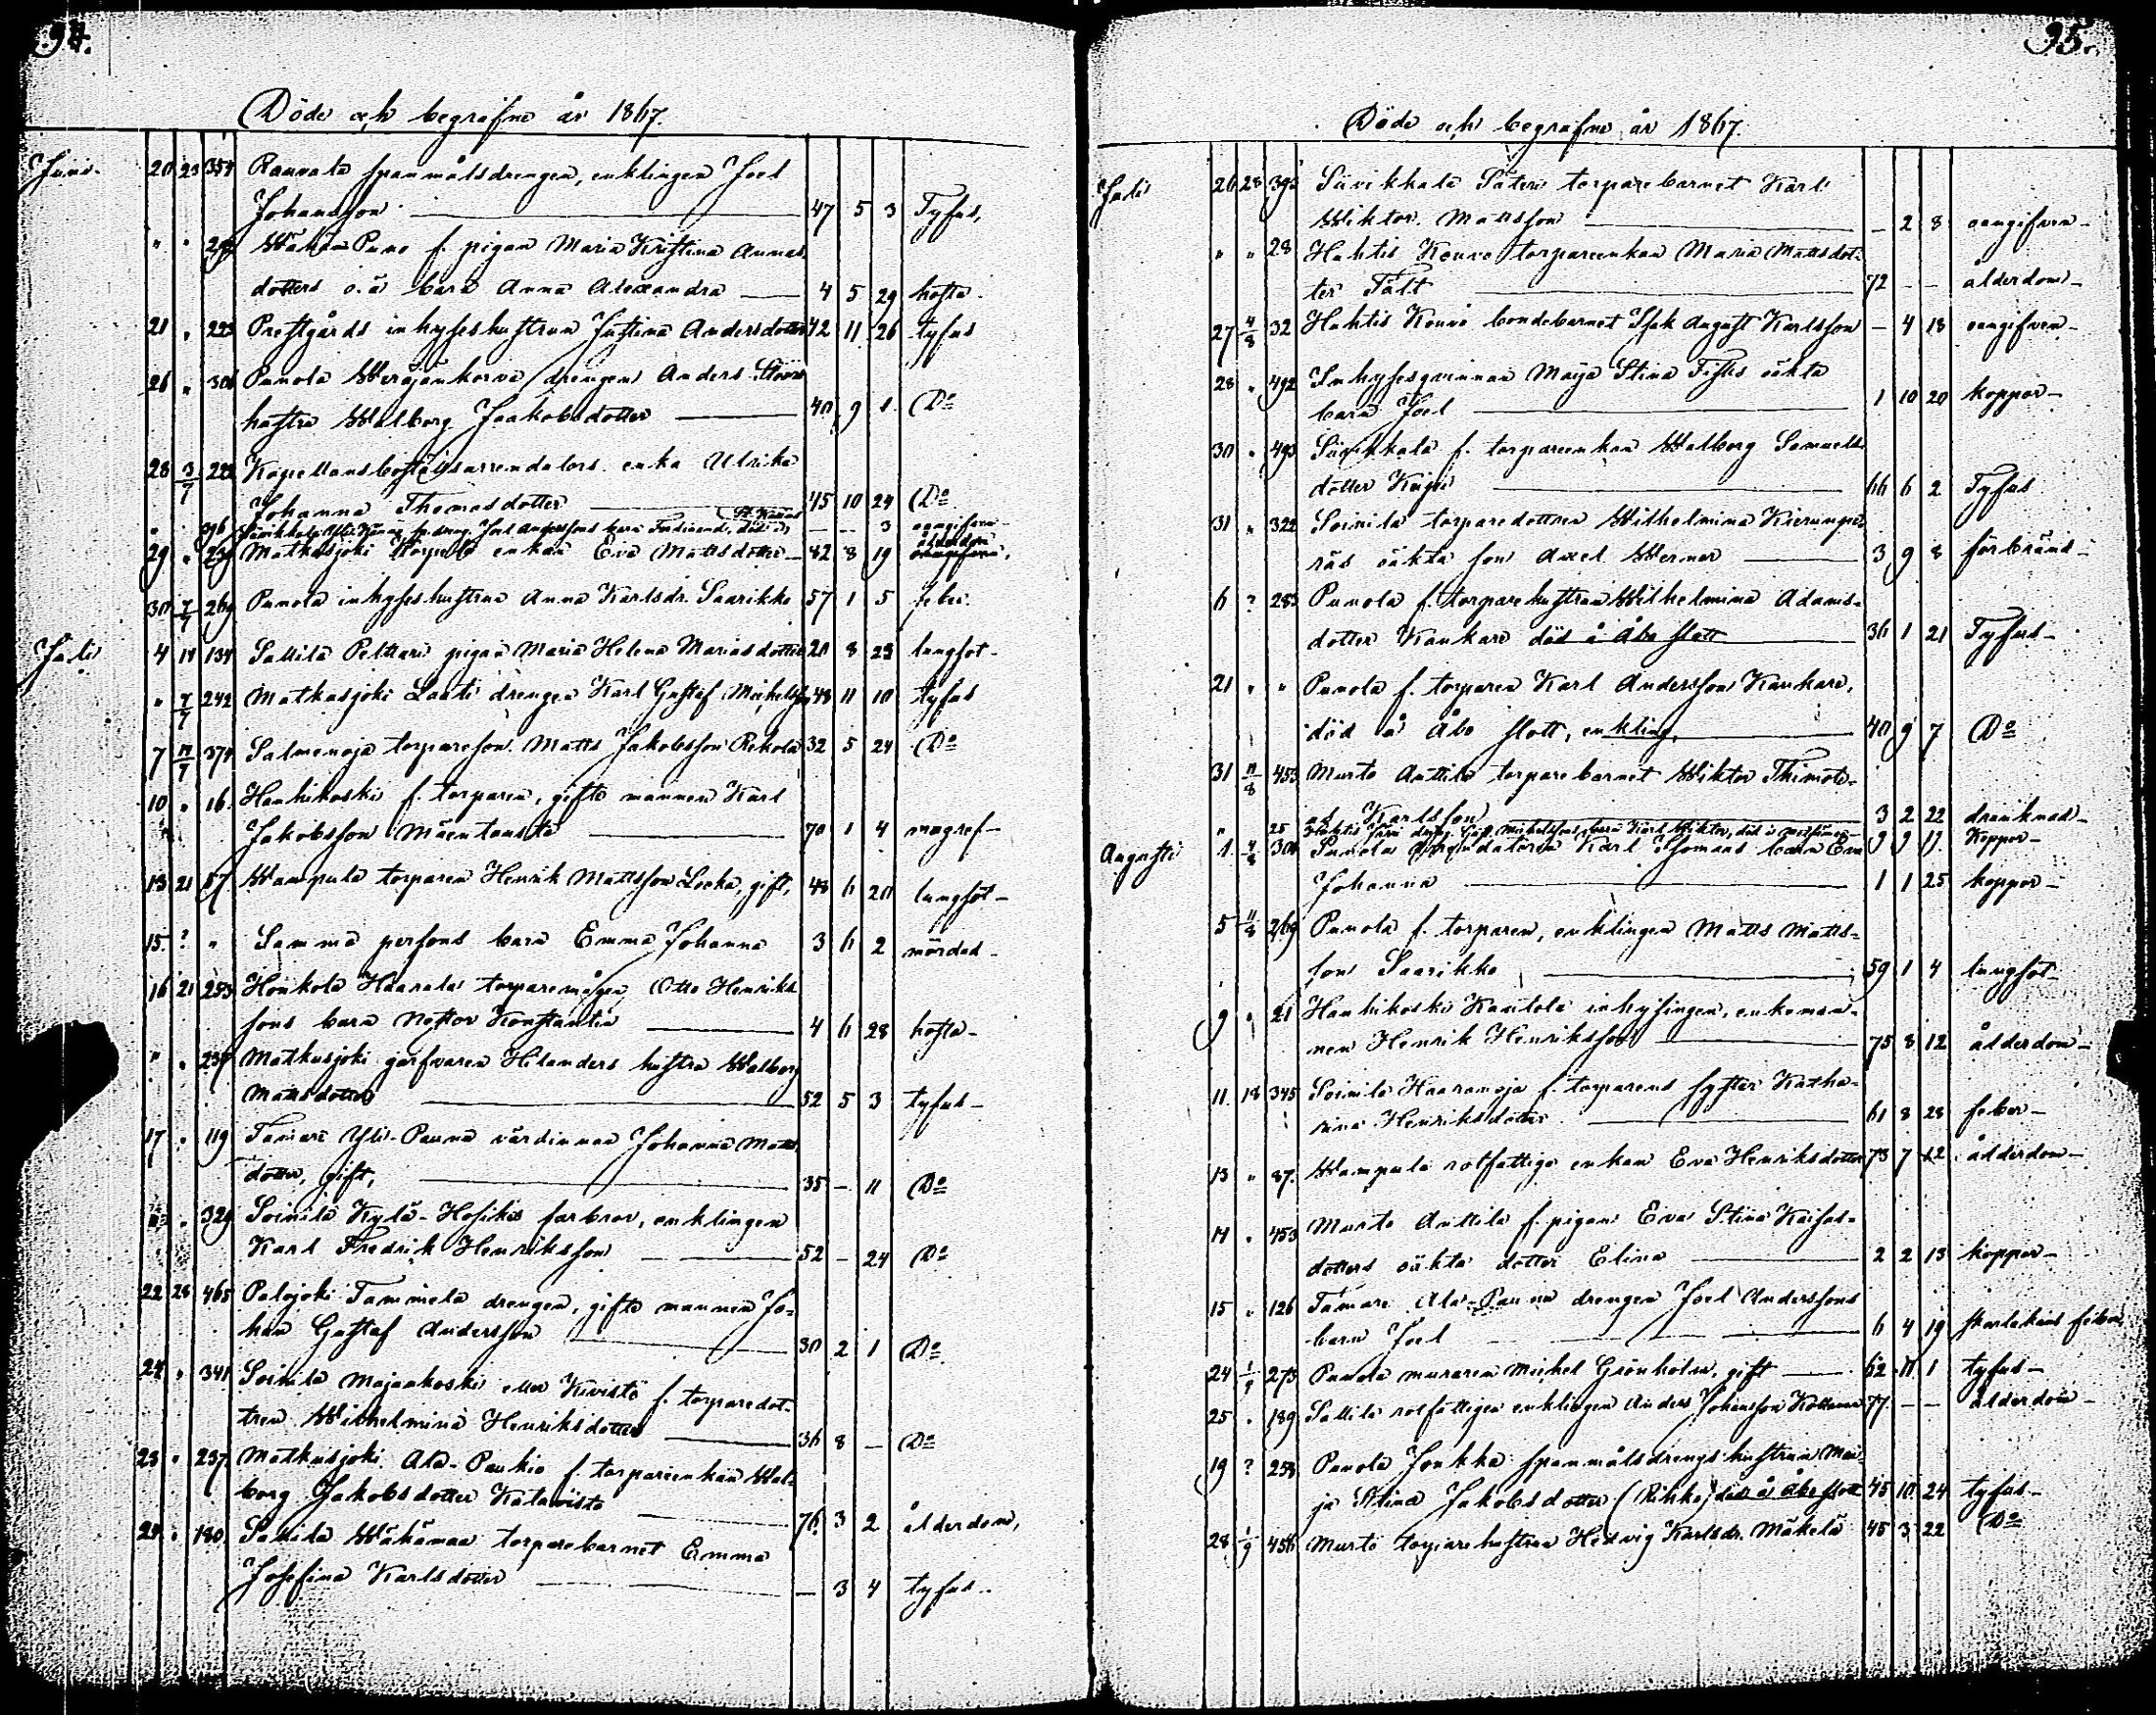 94.
Döde och begrafne år 1867.
Juni. 20 23 354 Rauvola spanmålsdrengen, enklingen Joel
Johansson 47 5 3 Tyfus,
" " Wähä Puno f. pigan Maria Kristina Annas
dotters o.ä barn Anna Alexandra 4 5 29 hosta.
21 " 223 Prestgårds inhyseshustrun Justina Andersdotter 42 11 26 tyfus
26 " 306 Punola Weräjänkorva drengen Anders
hustru Walborg Jaakobsdotter 40 9 1 Do
28 3/7 222 Kapellansboställsarrendators enka Ulrika
Johanna Thomasdotter 45 10 24 Do
" 396 Joel Anderssons barn Ferdinand, — — 3 oangifven
29 " 239 Matkusjoki Torpulo enkan Eva Mattsdotter 82 8 19 ålderdom
30 7/7 269 Punola inhyseshustrun Anna Karlsdr. Saarikko 57 1 5 feber.
Juli 4 14 134 Sallila Pelttari pigan Maria Helena Mariasdotter 20 8 23 lungsot
" 7/7 242 Matkusjoki Laati drengen Karl Gustaf Michelsson 48 11 10 tyfus
7 14/7 374 Salmenoja torpareson Matts Jakobsson Rekola 32 5 24 Do
10 " 16. Hanhikoski f. torparen, gifte mannen Karl
Jakobsson Mäentausta 70 1 4 magref
13 21 57 Wampula torparen Henrik Mattsson Leeka, gift, 48 6 20 lungsot
15 ? " Samma persons barn Emma Johanna 3 6 2 mördad
16 21 253 Honkola Haarala torparemågen Otto Henriks
sons barn Nestor Konstantin 4 6 28 hosta
" " 237 Matkusjoki garfvaren Hilanders hustru Walborg
Mattsdotter 52 5 3 tyfus
17 " 119 Tamare Yli-Pauna värdinnan Johanna Matts
dotter, gift, 35 — 11 Do
" 329 Soinila Kylä-Hosikos farbror, enklingen
Karl Fredrik Henriksson 52 — 24 Do
22 28 465 Palojoki Tammela drengen, gifte mannen Jo-
han Gustaf Andersson 30 2 1 Do
24 " 341 Soinila Majankoski eller Kivistö f. torparedot-
tren Wilhelmina Henriksdotter 36 8 — Do
23 " 237 Matkusjoki Ala-Paukio f. torpareenkan Wal-
borg Jakobsdotter Katavisto 76 3 2 ålderdom,
24 " 180. Sallila Wähämaa torparebarnet Emma
Josefina Karlsdotter — 3 4 tyfus
95.
Döde och begrafne år 1867.
Juli 26 28 395 Suvikkala Säteri torparebarnet Karl
Wiktor Mattsson — 2 8 oangifven
" " 28 Huhtis Kouvo torpareenkan Maria Mattsdot-
ter Fält 72 — — ålderdom
27 4/8 32 Huhtis Kouvo bondebarnet Isak August Karlsson — 4 18 oangifven
28 " 492 Inhysesqvinnan Maija Stina Fisks oäkta
barn Joel 1 10 20 koppor
30 " 493 Suvikkala f. torpareenkan Walborg Samuels
dotter 66 6 2 Tyfus
31 " 322 Soinila torparedottren Wilhelmina
oäkta son Axel Werner 3 9 8 förbränd
6 ? 283 Punola f. torparehustrun Wilhelmina Adams-
dotter Kankare död å Åbo slott 36 1 21 Tyfus
21 " " Punola f. torparen Karl Andersson Kankare,
död å Åbo slott, enkling, 40 9 7 Do
31 11/8 453 Murto Anttila torparebarnet Wiktor Thimote-
us Karlsson 3 2 22 drunknad
" 25 Huhtis Michelssons barn Karl Wiktor, död 9 9 9 Koppor
Augusti 1. 4/8 306 Punola arrendatoren Karl Thomas barn Eva
Johanna 1 1 25 koppor
5 11/8 269 Punola f. torparen, enklingen Matts Matts-
son Saarikko 59 1 4 lungsot
9 " 21 Hanhikoski Kantola inhysingen, enkeman-
nen Henrik Henriksson 75 8 12 ålderdom
11. 18 345 Soinila Haaranoja f. torparens syster Katha-
rina Henriksdotter 61 8 28 feber
13 " 87. Wampula rotfattiga enkan Eva Henriksdotter 73 7 12 ålderdom
14 " 453 Murto Anttila f. pigan Eva Stina Kaisas-
dotters oäkta dotter Elina 2 2 13 koppor
15 " 126 Tamare Ala-Pauna drengen Joel Anderssons
barn Joel 6 4 19 skarlakans feber
24 1/9 273 Punola muraren Michel Grönholm, gift 62 11 1 tyfus
25 " 189 Sallila rotfattigen enklingen Anders Johansson 77 — — ålderdom
19 ? 258 Punola Jonkka spanmålsdrengs hustrun Mai-
ja Stina Jakobsdotter (Rihko) död å Åbo slott 45 10 24 tyfus
28 1/9 456 Murto torparehustrun Hedvig Karlsdr. Mäkelä 45 3 22 Do